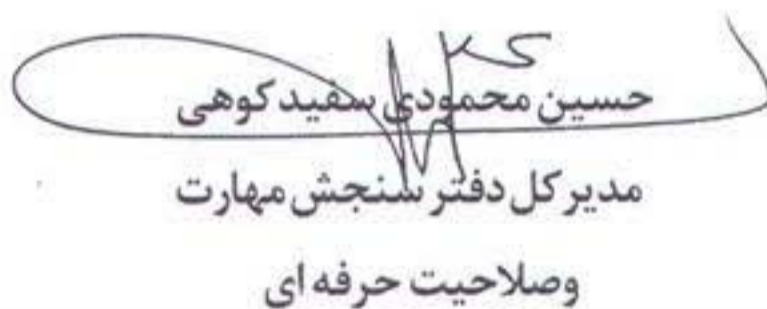 حسین محمودی سفیدکوهی
مدیرکل دفتر سنجش مهارت
وصلاحیت حرفه ای